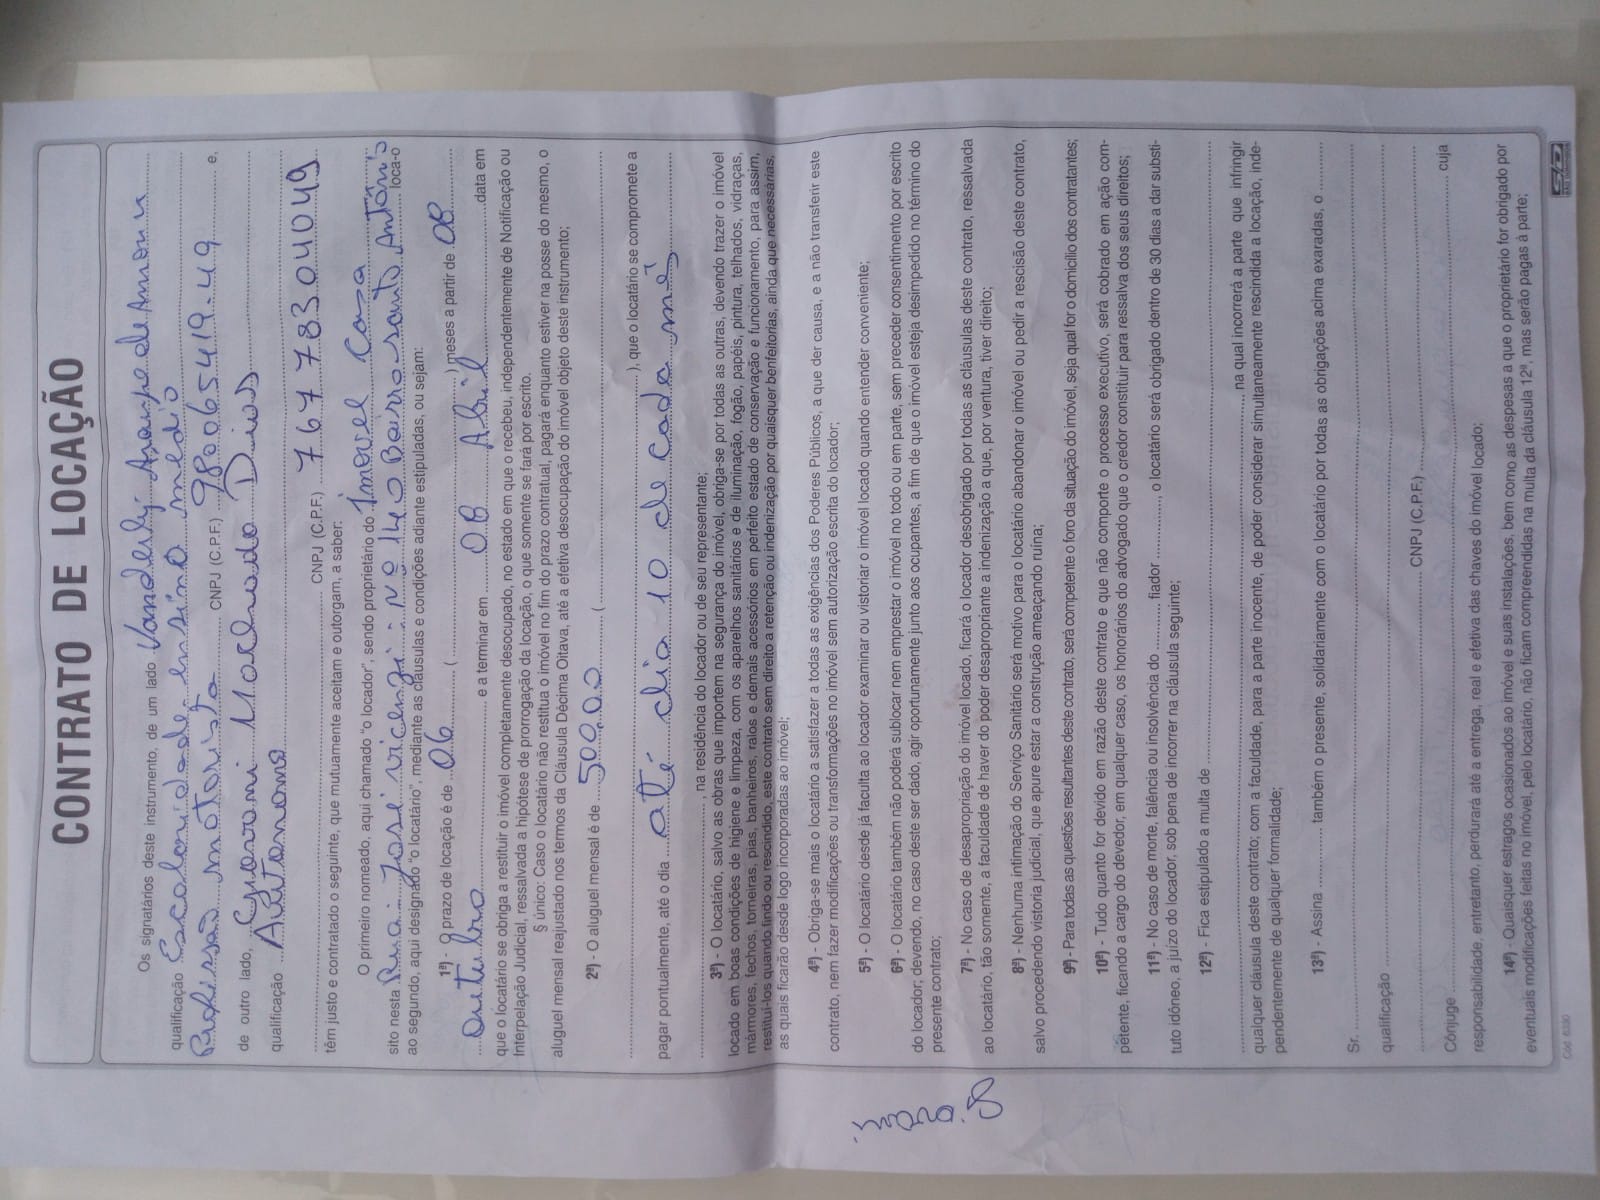 CONTRATO DE LOCAÇÃO
Os signatários deste instrumento, de um lado Vanderly
qualificação Escolaridade ensino médio e,
Profissão motorista CNPJ (C.P.F.) 980065419-49
de outro lado, Machado
qualificação Autonomo
CNPJ (C.P.F.) 76778304049
têm justo e contratado o seguinte, que mutuamente aceitam e outorgam, a saber:
O primeiro nomeado, aqui chamado "o locador", sendo proprietário do Imovel Casa
sito nesta Rua José vicenzi Nº 140 Bairro santo Antônio loca-o
ao segundo, aqui designado "o locatário", mediante as cláusulas e condições adiante estipuladas, ou sejam:
1ª) - O prazo de locação é de 06 ( ) meses a partir de 08
outubro e a terminar em 08 Abril data em
que o locatário se obriga a restituir o imóvel completamente desocupado, no estado em que o recebeu, independentemente de Notificação ou
Interpelação Judicial, ressalvada a hipótese de prorrogação da locação, o que somente se fará por escrito.
§ único: Caso o locatário não restitua o imóvel no fim do prazo contratual, pagará enquanto estiver na posse do mesmo, o
aluguel mensal reajustado nos termos da Cláusula Décima Oitava, até a efetiva desocupação do imóvel objeto deste instrumento;
2ª) - O aluguel mensal é de 500,00 (
), que o locatário se compromete a
pagar pontualmente, até o dia até dia 10 de cada mê
, na residência do locador ou de seu representante;
3ª) - O locatário, salvo as obras que importem na segurança do imóvel, obriga-se por todas as outras, devendo trazer o imóvel
locado em boas condições de higiene e limpeza, com os aparelhos sanitários e de iluminação, fogão, papéis, pintura, telhados, vidraças,
mármores, fechos, torneiras, pias, banheiros, ralos e demais acessórios em perfeito estado de conservação e funcionamento, para assim,
restituí-los quando findo ou rescindido, este contrato sem direito a retenção ou indenização por quaisquer benfeitorias, ainda que necessárias,
as quais ficarão desde logo incorporadas ao imóvel;
4ª) - Obriga-se mais o locatário a satisfazer a todas as exigências dos Poderes Públicos, a que der causa, e a não transferir este
contrato, nem fazer modificações ou transformações no imóvel sem autorização escrita do locador;
5ª) - O locatário desde já faculta ao locador examinar ou vistoriar o imóvel locado quando entender conveniente;
6ª) - O locatário também não poderá sublocar nem emprestar o imóvel no todo ou em parte, sem preceder consentimento por escrito
do locador; devendo, no caso deste ser dado, agir oportunamente junto aos ocupantes, a fim de que o imóvel esteja desimpedido no término do
presente contrato;
7ª) - No caso de desapropriação do imóvel locado, ficará o locador desobrigado por todas as cláusulas deste contrato, ressalvada
ao locatário, tão somente, a faculdade de haver do poder desapropriante a indenização a que, por ventura, tiver direito;
8ª) - Nenhuma intimação do Serviço Sanitário será motivo para o locatário abandonar o imóvel ou pedir a rescisão deste contrato,
salvo procedendo vistoria judicial, que apure estar a construção ameaçando ruína;
9ª) - Para todas as questões resultantes deste contrato, será competente o foro da situação do imóvel, seja qual for o domicílio dos contratantes;
10ª) - Tudo quanto for devido em razão deste contrato e que não comporte o processo executivo, será cobrado em ação com-
petente, ficando a cargo do devedor, em qualquer caso, os honorários do advogado que o credor constituir para ressalva dos seus direitos;
11ª) - No caso de morte, falência ou insolvência do fiador , o locatário será obrigado dentro de 30 dias a dar substi-
tuto idôneo, a juízo do locador, sob pena de incorrer na cláusula seguinte;
12ª) - Fica estipulado a multa de
na qual incorrerá a parte que infringir
qualquer cláusula deste contrato; com a faculdade, para a parte inocente, de poder considerar simultaneamente rescindida a locação, inde-
pendentemente de qualquer formalidade;
13ª) - Assina também o presente, solidariamente com o locatário por todas as obrigações acima exaradas, o
Sr.
qualificação
CNPJ (C.P.F.)
Cônjuge cuja
responsabilidade, entretanto, perdurará até a entrega, real e efetiva das chaves do imóvel locado;
14ª) - Quaisquer estragos ocasionados ao imóvel e suas instalações, bem como as despesas a que o proprietário for obrigado por
eventuais modificações feitas no imóvel, pelo locatário, não ficam compreendidas na multa da cláusula 12ª, mas serão pagas à parte;